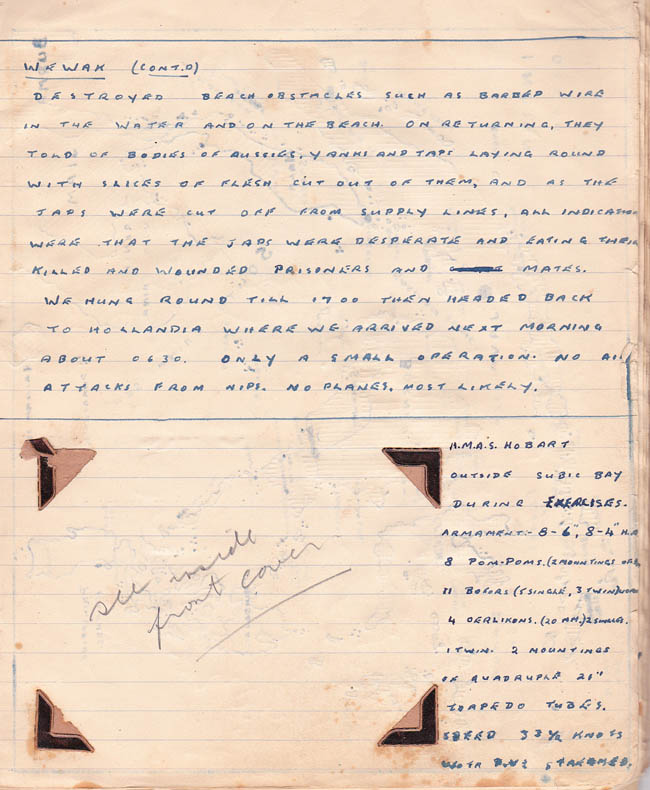 WEWAK (CONT.D)
DESTROYED BEACH OBSTACLES SUCH AS BARBED WIRE
IN THE WATER AND ON THE BEACH. ON RETURNING, THEY
TOLD OF BODIES OF AUSSIES, YANKS AND JAPS LAYING ROUND
WITH SLICES OF FLESH CUT OUT OF THEM, AND AS THE
JAPS WERE CUT OFF FROM SUPPLY LINES, ALL INDICATION
WERE THAT THE JAPS WERE DESPERATE AND EATING THEIR
KILLED AND WOUNDED PRISONERS AND MATES.
WE HUNG ROUND TILL 1700 THEN HEADED BACK
TO HOLLANDIA WHERE WE ARRIVED NEXT MORNING
ABOUT 0630. ONLY A SMALL OPERATION. NO AIR
ATTACKS FROM NIPS. NO PLANES, MOST LIKELY.
H.M.A.S. HOBART
OUTSIDE SUBIC BAY
DURING EXERCISES.
ARMAMENT:- 8-6", 8-4" H.A.
8 POM-POMS. (2 MOUNTINGS OF
11 BOFORS (5 SINGLE, 3 TWIN)
4 OERLIKONS. (20 MM.) 2 SINGLE.
1 TWIN. 2 MOUNTINGS
OF QUADRUPLE 21"
TORPEDO TUBES.
SPEED 33½ KNOTS
WITH P.V's STREAMED.
see inside
front cover